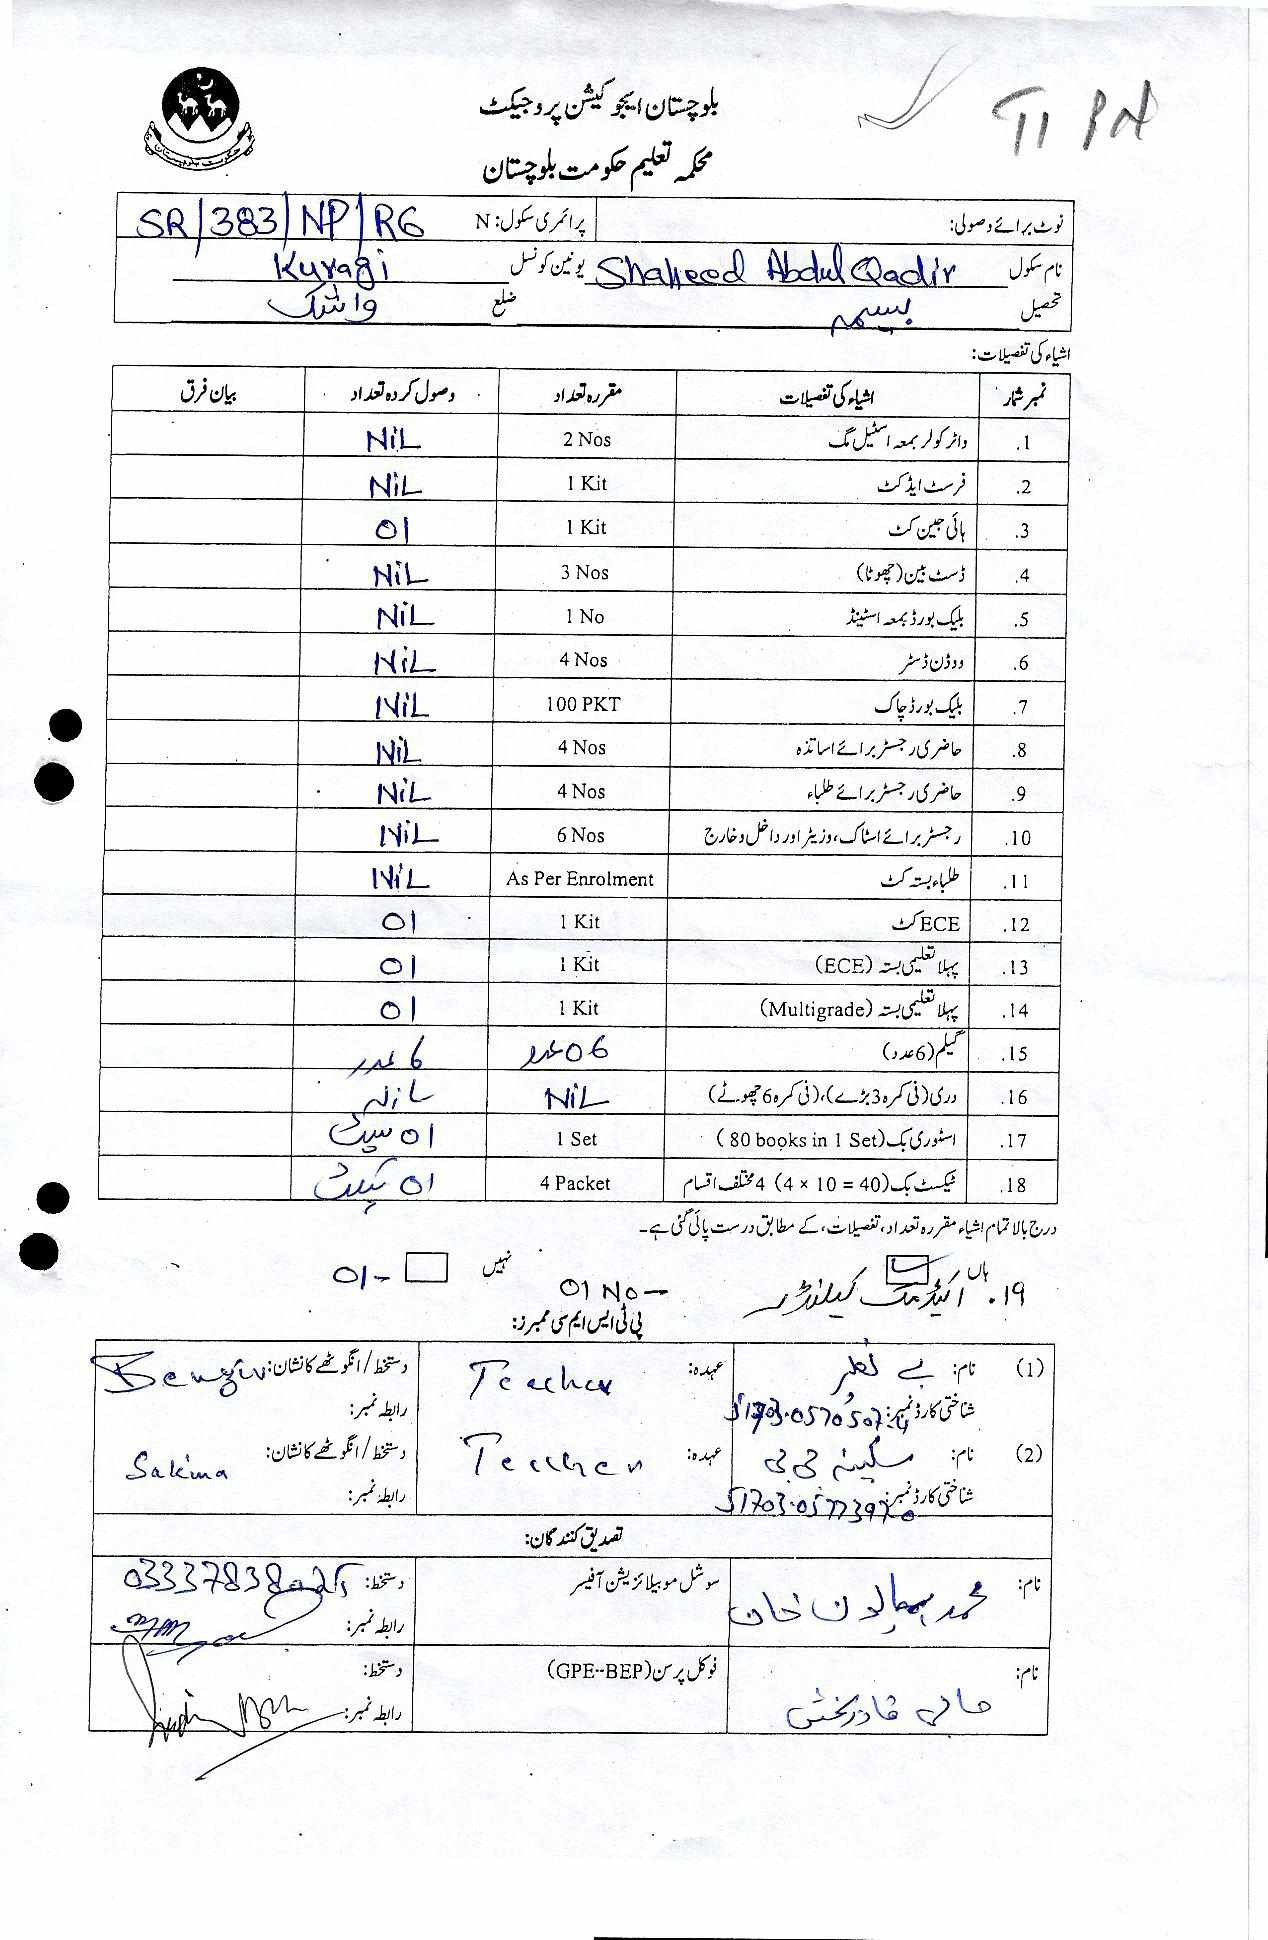 بلوچستان ایجوکیشن پروجیکٹ
محکمہ تعلیم حکومت بلوچستان
نوٹ برائے وصولی: پرائمری سکول: N SR/383/NP/RG
نام سکول Shaheed Abdul Qadir یونین کونسل Kuragi
تحصیل بسیمہ ضلع واشک
اشیاء کی تفصیلات:
نمبر شمار اشیاء کی تفصیلات مقررہ تعداد وصول کردہ تعداد بیان فرق
1. واٹر کولر بمعہ اسٹیل مگ 2 Nos NiL
2. فرسٹ ایڈ کٹ 1 Kit NiL
3. ہائی جین کٹ 1 Kit 01
4. ڈسٹ بین (چھوٹا) 3 Nos NiL
5. بلیک بورڈ بمعہ اسٹینڈ 1 No NiL
6. ووڈن ڈسٹر 4 Nos NiL
7. بلیک بورڈ چاک 100 PKT NiL
8. حاضری رجسٹر برائے اساتذہ 4 Nos NiL
9. حاضری رجسٹر برائے طلباء 4 Nos NiL
10. رجسٹر برائے اسٹاک، وزیٹر اور داخل و خارج 6 Nos NiL
11. طلباء بستہ کٹ As Per Enrolment NiL
12. ECE کٹ 1 Kit 01
13. پہلا تعلیمی بستہ (ECE) 1 Kit 01
14. پہلا تعلیمی بستہ (Multigrade) 1 Kit 01
15. گیلم (6 عدد) 06 عدد 6 عدد
16. دری (فی کمرہ 3 بڑے)، (فی کمرہ 6 چھوٹے) NiL
17. اسٹوری بک (80 books in 1 Set) 1 Set 01 سیٹ
18. ٹیکسٹ بک (4 × 10 = 40) 4 مختلف اقسام 4 Packet 01 پیکٹ
درج بالا تمام اشیاء مقررہ تعداد، تفصیلات، کے مطابق درست پائی گئی ہے۔
ہاں نہیں 01-
۱۹. اکیڈمک کیلنڈر 01 No-
پی ٹی ایس ایم سی ممبرز:
(1) نام: بے نظیر عہدہ: Teacher دستخط / انگوٹھے کا نشان:
شناختی کارڈ نمبر: رابطہ نمبر:
(2) نام: سکینہ بی بی عہدہ: Teacher دستخط / انگوٹھے کا نشان: Sakina
شناختی کارڈ نمبر: رابطہ نمبر:
تصدیق کنندگان:
نام: محمد ہمایون خان سوشل موبیلائزیشن آفیسر دستخط:
رابطہ نمبر:
نام: حاجی قادر بخش فوکل پرسن (GPE-BEP) دستخط:
رابطہ نمبر: